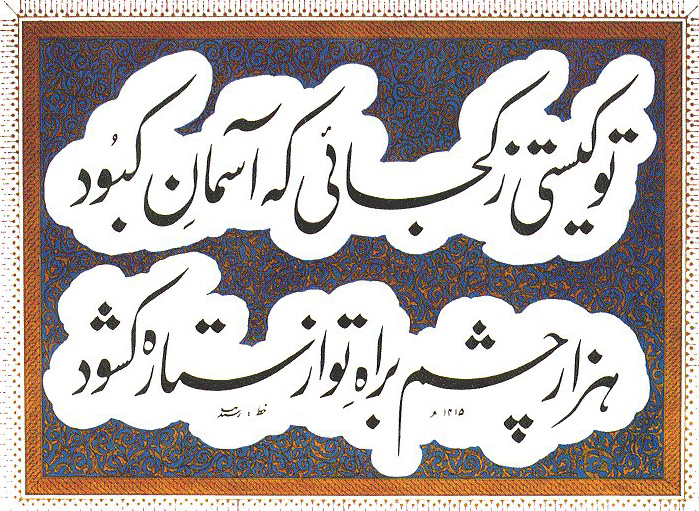 تو کیستی ز کجائی که آسمانِ کبُود
هزار چشم براهِ تو از ستاره کشود
۱۴۱۵ م
خط :